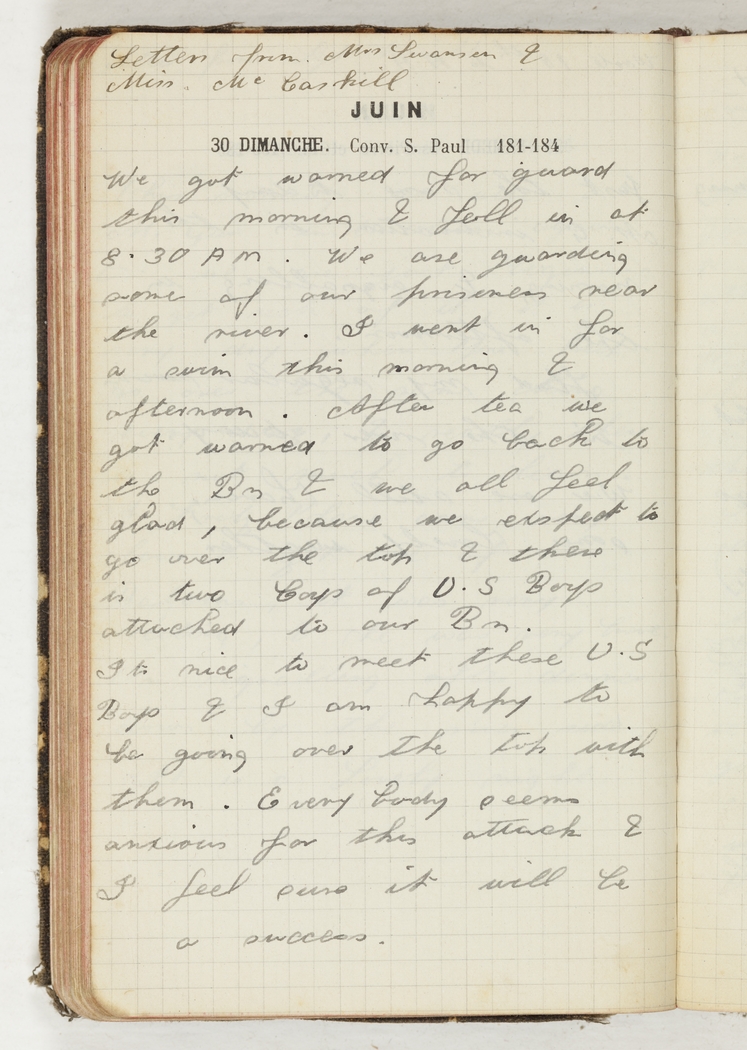 Letters from. Mrs Swansen &
Miss. Mc Caskill
JUIN
30 DIMANCHE. Conv. S. Paul 181-184
We got warned for guard
this morning & fell in at
8.30 AM. We are guarding
some of our prisoners near
the river. I went in for
a swim this morning &
afternoon. After tea we
got warned to go back to
the Bn & we all feel
glad, because we exspect to
go over the top & there
is two Coys of U.S Boys
attached to our Bn.
Its nice to meet these U.S
Boys & I am happy to
be going over the top with
them. Every body seems
anxious for this attack &
I feel sure it will be
a success.